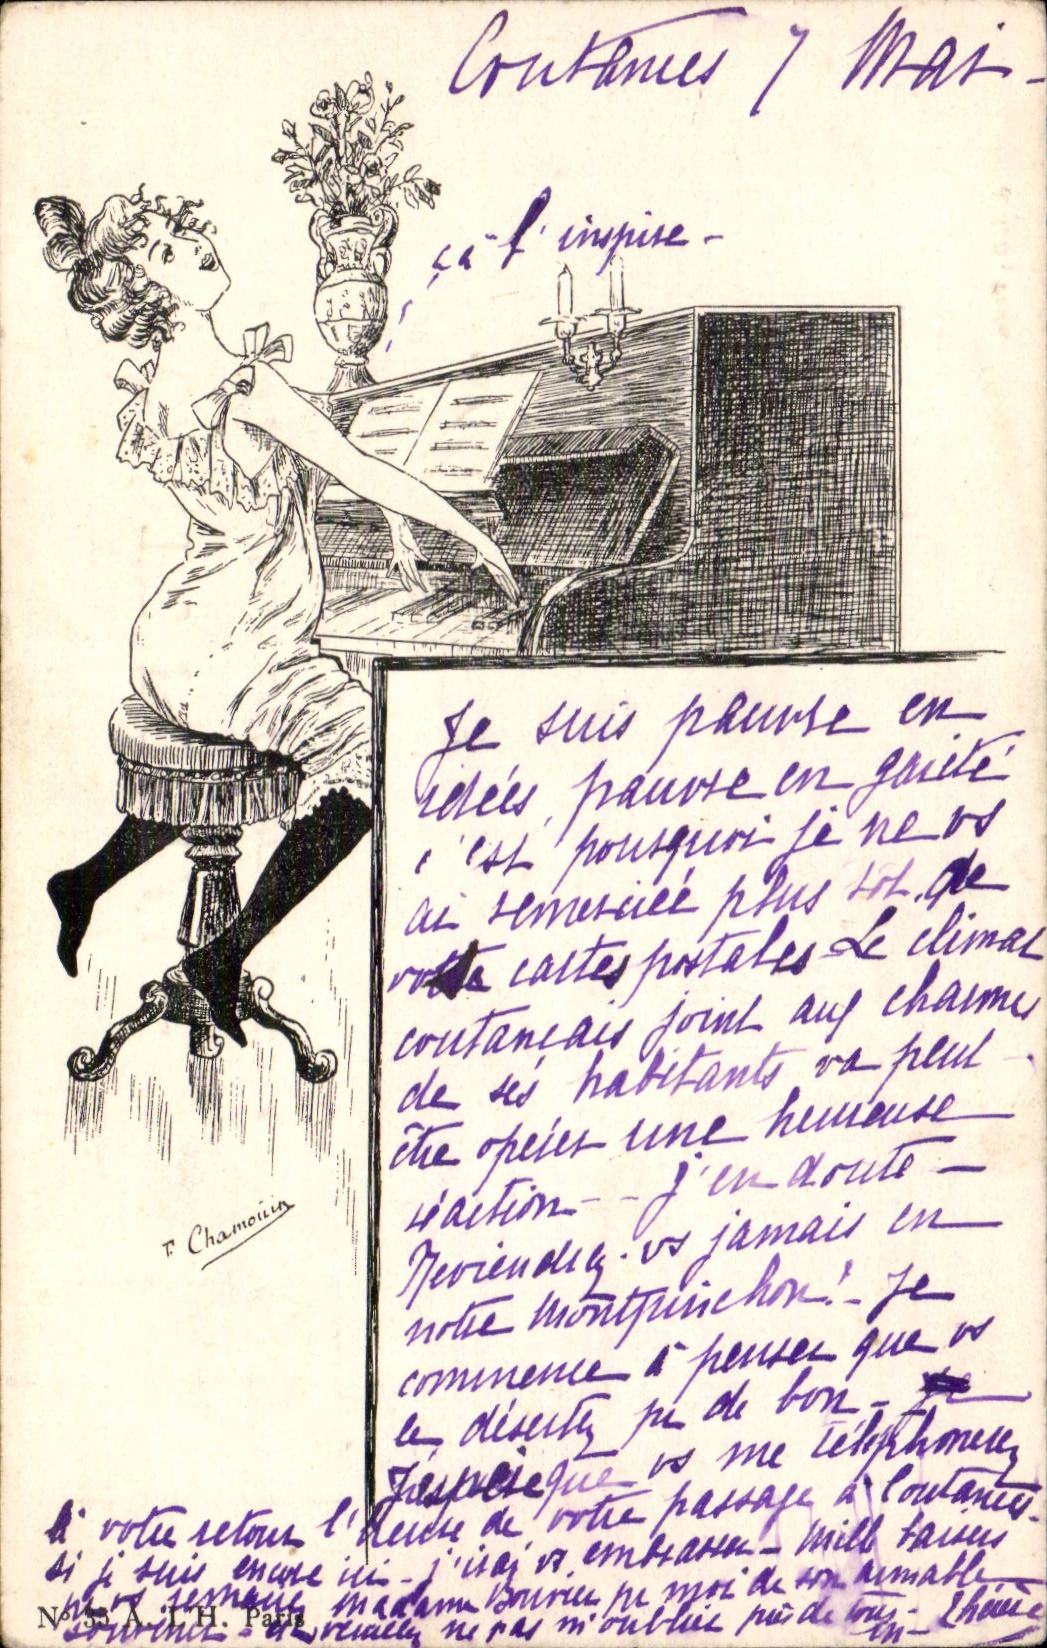 Coutances 7 Mai -
ça l'inspire -
Je suis pauvre en
idées, pauvre en gaieté
c'est pourquoi je ne vs
ai remerciée plus tôt de
votre cartes postales - Le climat
coutançais joint aux charmes
de ses habitants va peut-
être opérer une heureuse
réaction - - j'en doute -
Reviendrez-vs jamais en
notre Montpinchon! - Je
commence à penser que vs
le désertez pr de bon -
J'espère que vs me téléphonerez
à votre retour l'heure de votre passage à Coutances -
si je suis encore ici - j'irai vs embrasser - Mille baisers
remercie madame Bouvier pr moi de son aimable
souvenir - et veuillez ne pas m'oublier près de tous -
F. Chamouin
No 35 A. J. H. Paris